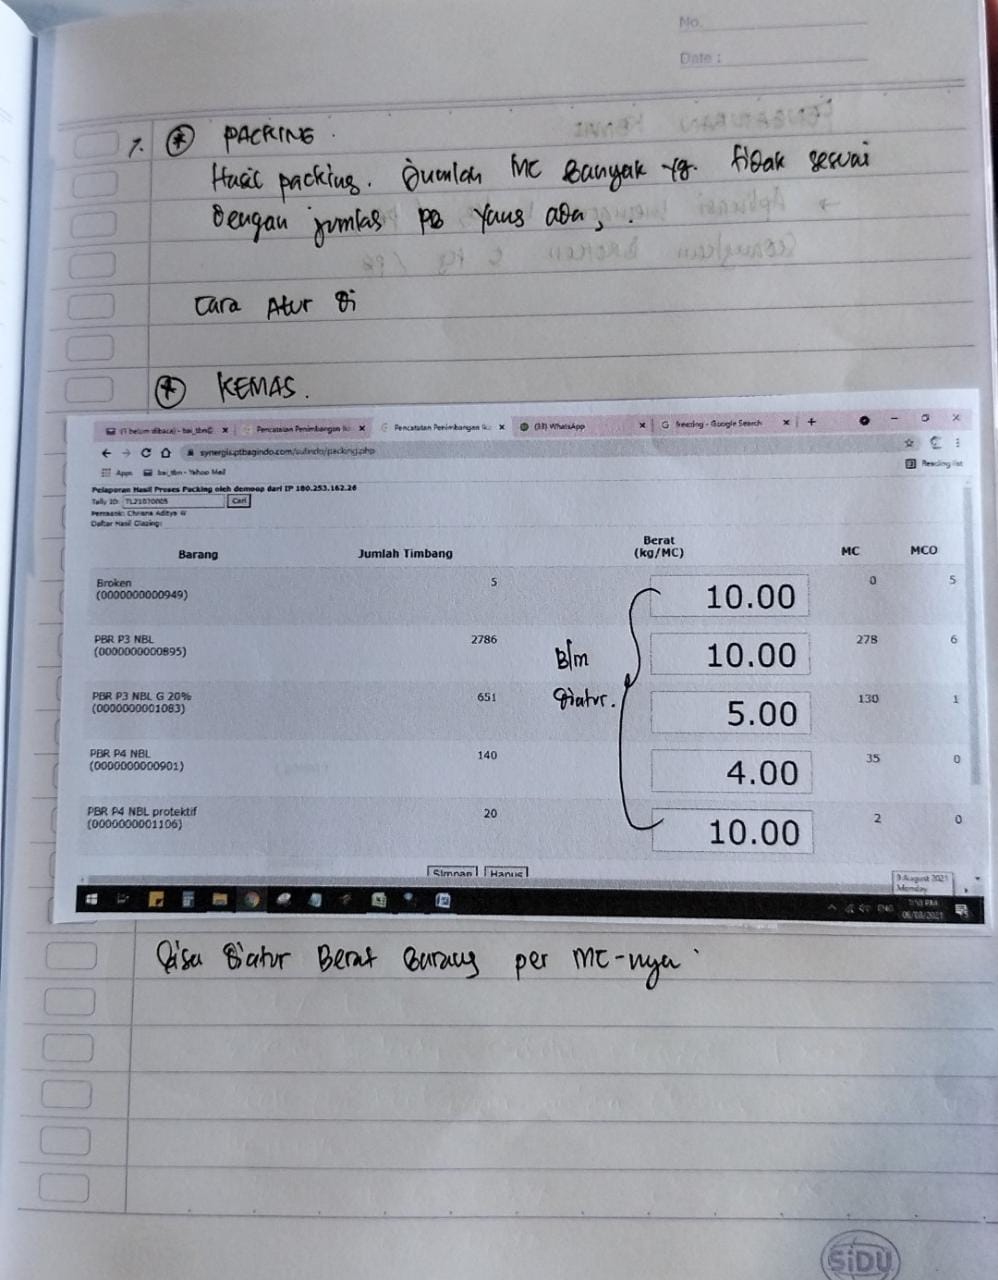 No.
Date :
7. * PACKING.
Hasil packing. Jumlah MC Banyak yg. tidak sesuai
dengan jumlah PB yang ada,
Cara Atur di
* KEMAS.
(1 belum dibaca) - bai_tbn@ Pencatatan Penimbangan Ik Pencatatan Penimbangan Ik (33) WhatsApp freezing - Google Search
synergis.ptbagindo.com/sulindo/packing.php
Apps bai_tbn - Yahoo Mail Reading list
Pelaporan Hasil Proses Packing oleh demoop dari IP 180.253.162.26
Tally ID: TL21070005 Cari
Pemasok: Chrisna Aditya W
Daftar Hasil Glazing:
Barang Jumlah Timbang Berat (kg/MC) MC MCO
Broken 5 10.00 0 5
(0000000000949)
PBR P3 NBL 2786 10.00 278 6
(0000000000895)
Blm
diatur.
PBR P3 NBL G 20% 651 5.00 130 1
(0000000001083)
PBR P4 NBL 140 4.00 35 0
(0000000000901)
PBR P4 NBL protektif 20 10.00 2 0
(0000000001106)
Simpan Hapus
9 August 2021
Monday
ENG
Bisa diatur Berat Barang per MC-nya
SiDU